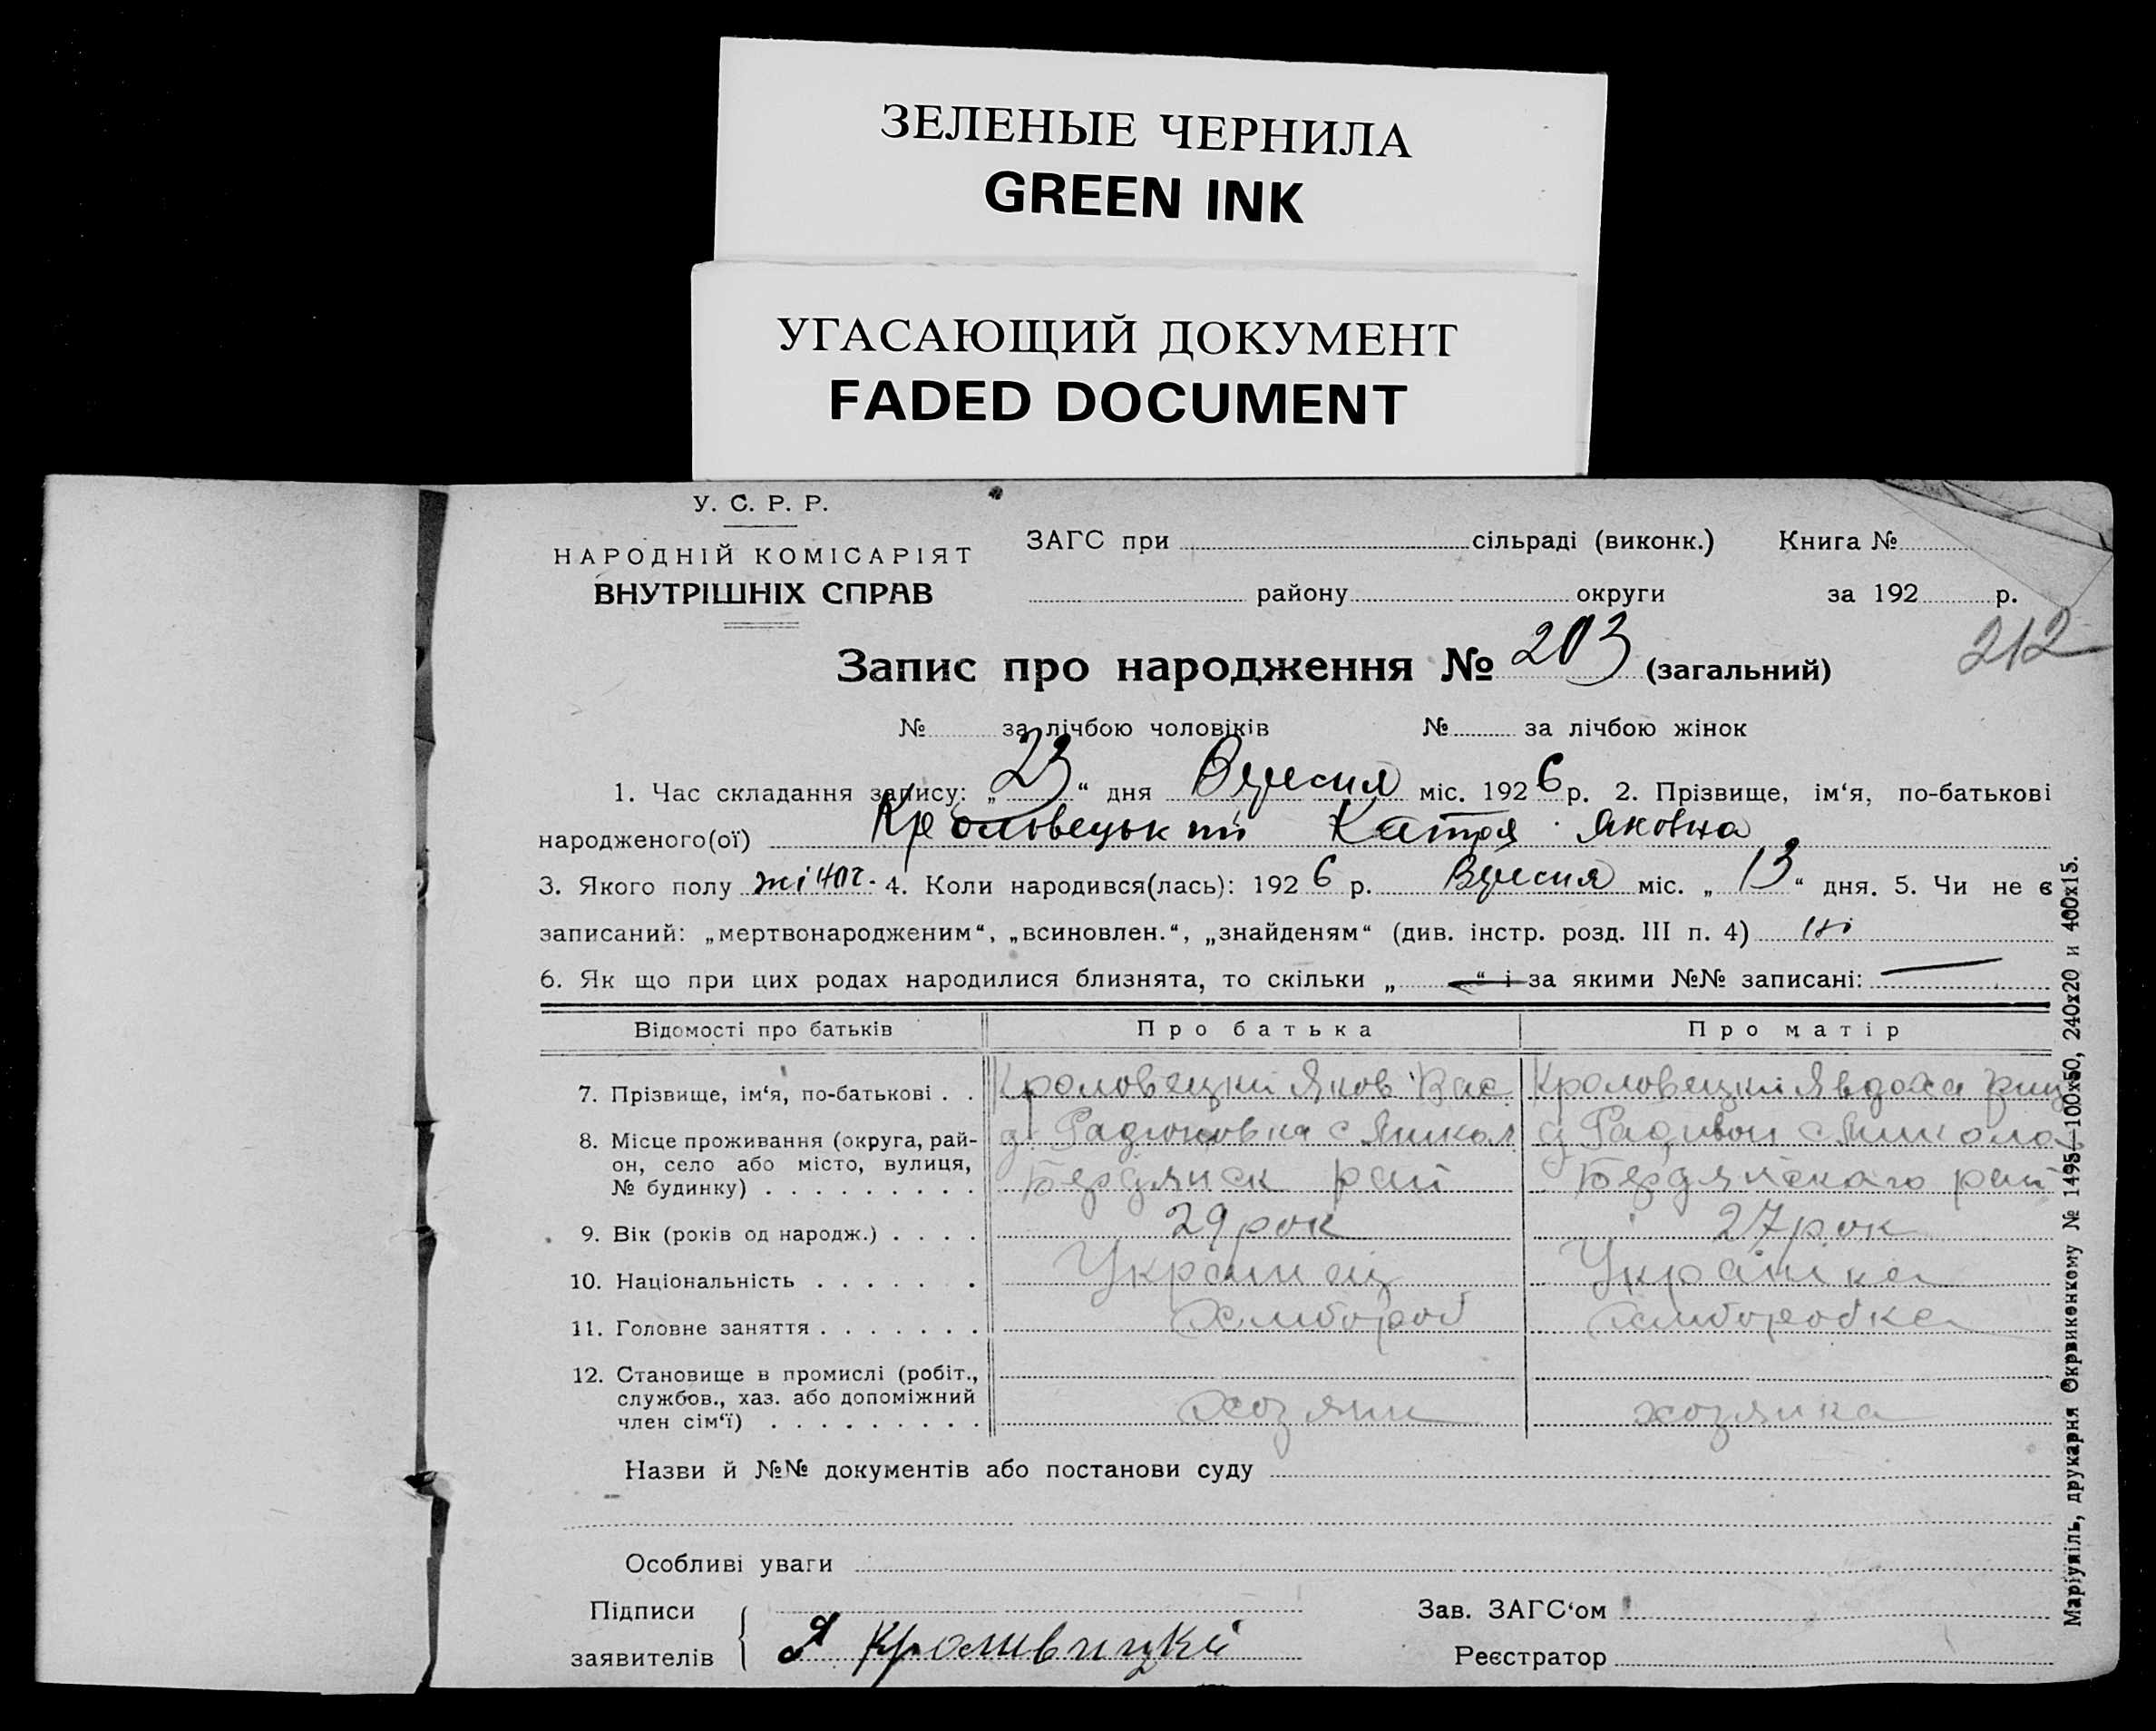 ЗЕЛЕНЫЕ ЧЕРНИЛА
GREEN INK
УГАСАЮЩИЙ ДОКУМЕНТ
FADED DOCUMENT
У. С. Р. Р.
НАРОДНІЙ КОМІСАРІЯТ
ВНУТРІШНІХ СПРАВ
ЗАГС при сільраді (виконк.) Книга №
району округи за 192 р.
212
Запис про народження № 203 (загальний)
№ за лічбою чоловіків № за лічбою жінок
1. Час складання запису: „23“ дня Вересня міс. 1926 р. 2. Прізвище, ім‘я, по-батькові
народженого(ої) Крольовецький Катря Яковна
3. Якого полу жіноч. 4. Коли народився(лась): 1926 р. Вересня міс. „13“ дня. 5. Чи не є
записаний: „мертвонародженим“, „всиновлен.“, „знайденям“ (див. інстр. розд. III п. 4) ні
6. Як що при цих родах народилися близнята, то скільки „ “ і за якими №№ записані: —
Відомості про батьків Про батька Про матір
7. Прізвище, ім‘я, по-батькові . . Кроловецки Яков Вас Кроловецки Явдоха
8. Місце проживання (округа, рай-
он, село або місто, вулиця,
№ будинку) . . . . . . . . . Бердянск рай Бердянскаго рай
9. Вік (років од народж.) . . . . 29 рок 27 рок
10. Національність . . . . . . . Украинец Українка
11. Головне заняття . . . . . . . хлибороб хлиборобка
12. Становище в промислі (робіт.,
службов., хаз. або допоміжний
член сім‘ї) . . . . . . . . . хозяин хозяика
Назви й №№ документів або постанови суду
Особливі уваги
Підписи
заявителів Я Кроливицкй
Зав. ЗАГС‘ом
Реєстратор
Маріупіль, друкарня Окрвиконкому № 1495—100х50, 240х20 и 400х15.